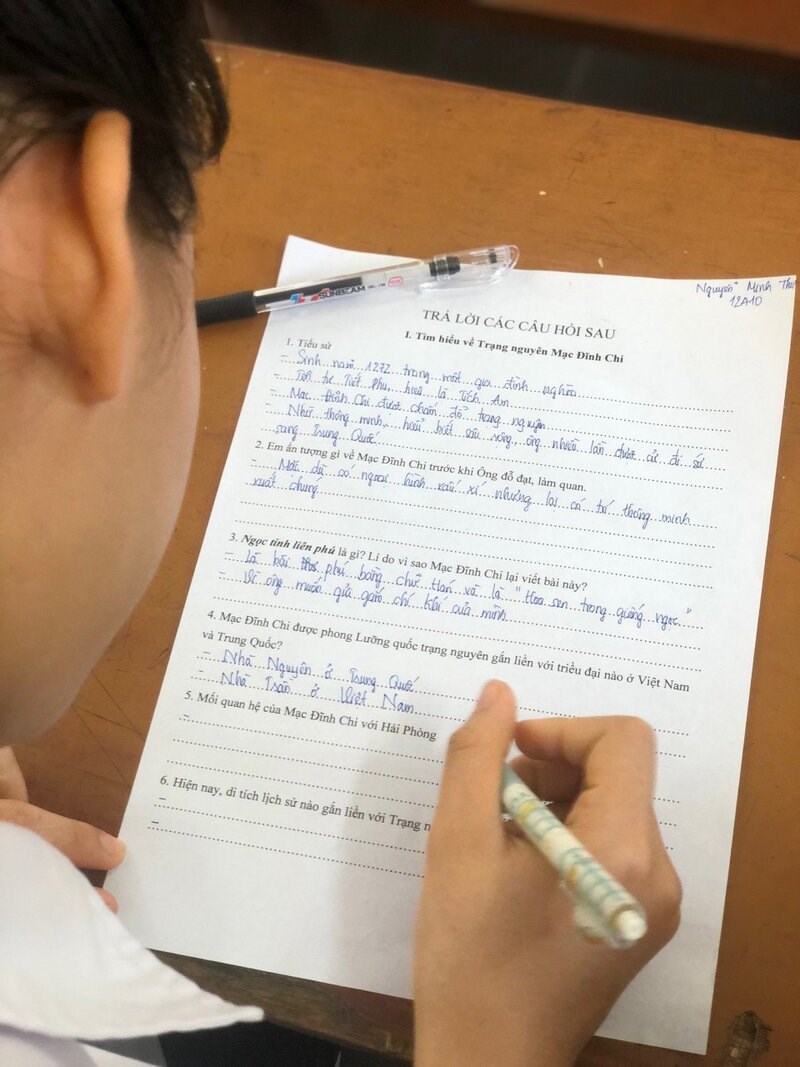 SUNBEAM
Nguyễn Minh Thư
12A10
TRẢ LỜI CÁC CÂU HỎI SAU
I. Tìm hiểu về Trạng nguyên Mạc Đĩnh Chi
1. Tiểu sử
- Sinh năm 1272 trong một gia đình nghèo
- Tên tự Tiết Phu, hiệu là Tích Am
- Mạc Đĩnh Chi được chấm đỗ trạng nguyên
- Nhờ thông minh, hiểu biết sâu rộng, ông nhiều lần được cử đi sứ
sang Trung Quốc
2. Em ấn tượng gì về Mạc Đĩnh Chi trước khi Ông đỗ đạt, làm quan.
- Mặc dù có ngoại hình xấu xí nhưng lại có trí thông minh
xuất chúng
3. Ngọc tỉnh liên phú là gì? Lí do vì sao Mạc Đĩnh Chi lại viết bài này?
- Là bài phú bằng chữ Hán và là "Hoa sen trong giếng ngọc"
- Vì ông muốn gửi gắm chí khí của mình
4. Mạc Đĩnh Chi được phong Lưỡng quốc trạng nguyên gắn liền với triều đại nào ở Việt Nam
và Trung Quốc?
- Nhà Nguyên ở Trung Quốc
- Nhà Trần ở Việt Nam
5. Mối quan hệ của Mạc Đĩnh Chi với Hải Phòng
-
6. Hiện nay, di tích lịch sử nào gắn liền với Trạng
-
-